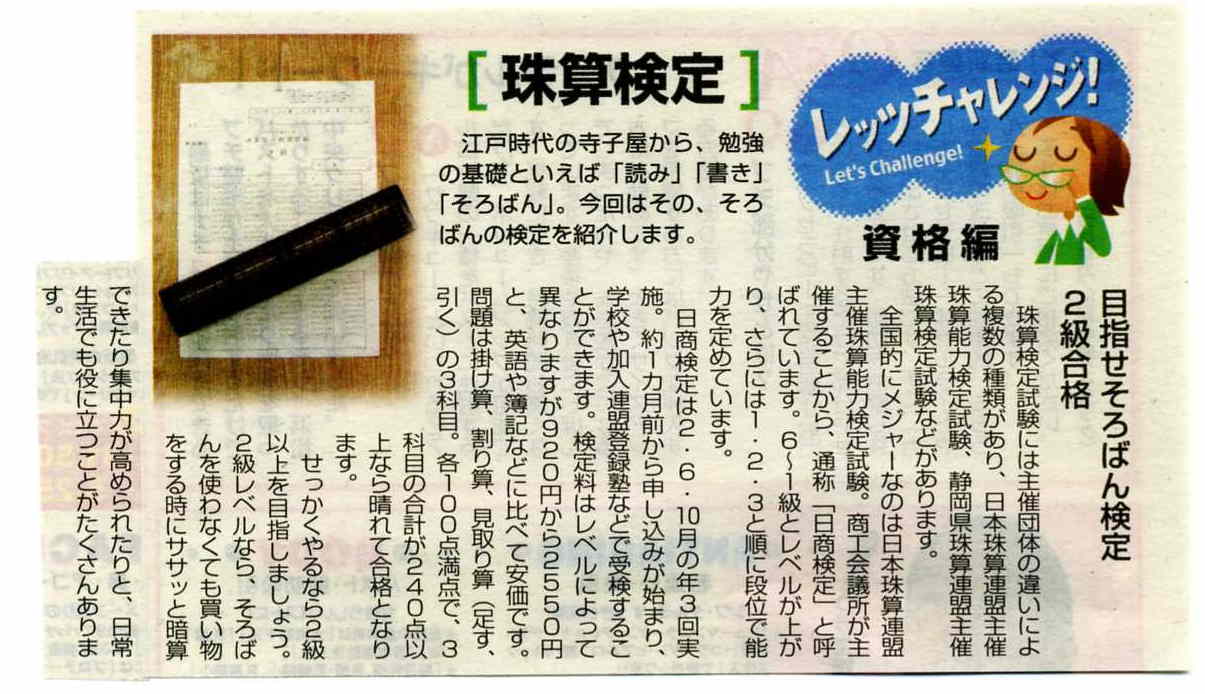 レッツチャレンジ!
Let's Challenge!
資格編
[珠算検定]
江戸時代の寺子屋から、勉強
の基礎といえば「読み」「書き」
「そろばん」。今回はその、そろ
ばんの検定を紹介します。
目指せそろばん検定
2級合格
珠算検定試験には主催団体の違いによ
る複数の種類があり、日本珠算連盟主催
珠算能力検定試験、静岡県珠算連盟主催
珠算検定試験などがあります。
全国的にメジャーなのは日本珠算連盟
主催珠算能力検定試験。商工会議所が主
催することから、通称「日商検定」と呼
ばれています。6〜1級とレベルが上が
り、さらには1・2・3と順に段位で能
力を定めています。
日商検定は2・6・10月の年3回実
施。約1カ月前から申し込みが始まり、
学校や加入連盟登録塾などで受検するこ
とができます。検定料はレベルによって
異なりますが920円から2550円
と、英語や簿記などに比べて安価です。
問題は掛け算、割り算、見取り算（足す、
引く）の3科目。各100点満点で、3
科目の合計が240点以
上なら晴れて合格となり
ます。
せっかくやるなら2級
以上を目指しましょう。
2級レベルなら、そろば
んを使わなくても買い物
をする時にササッと暗算
できたり集中力が高められたりと、日常
生活でも役に立つことがたくさんありま
す。